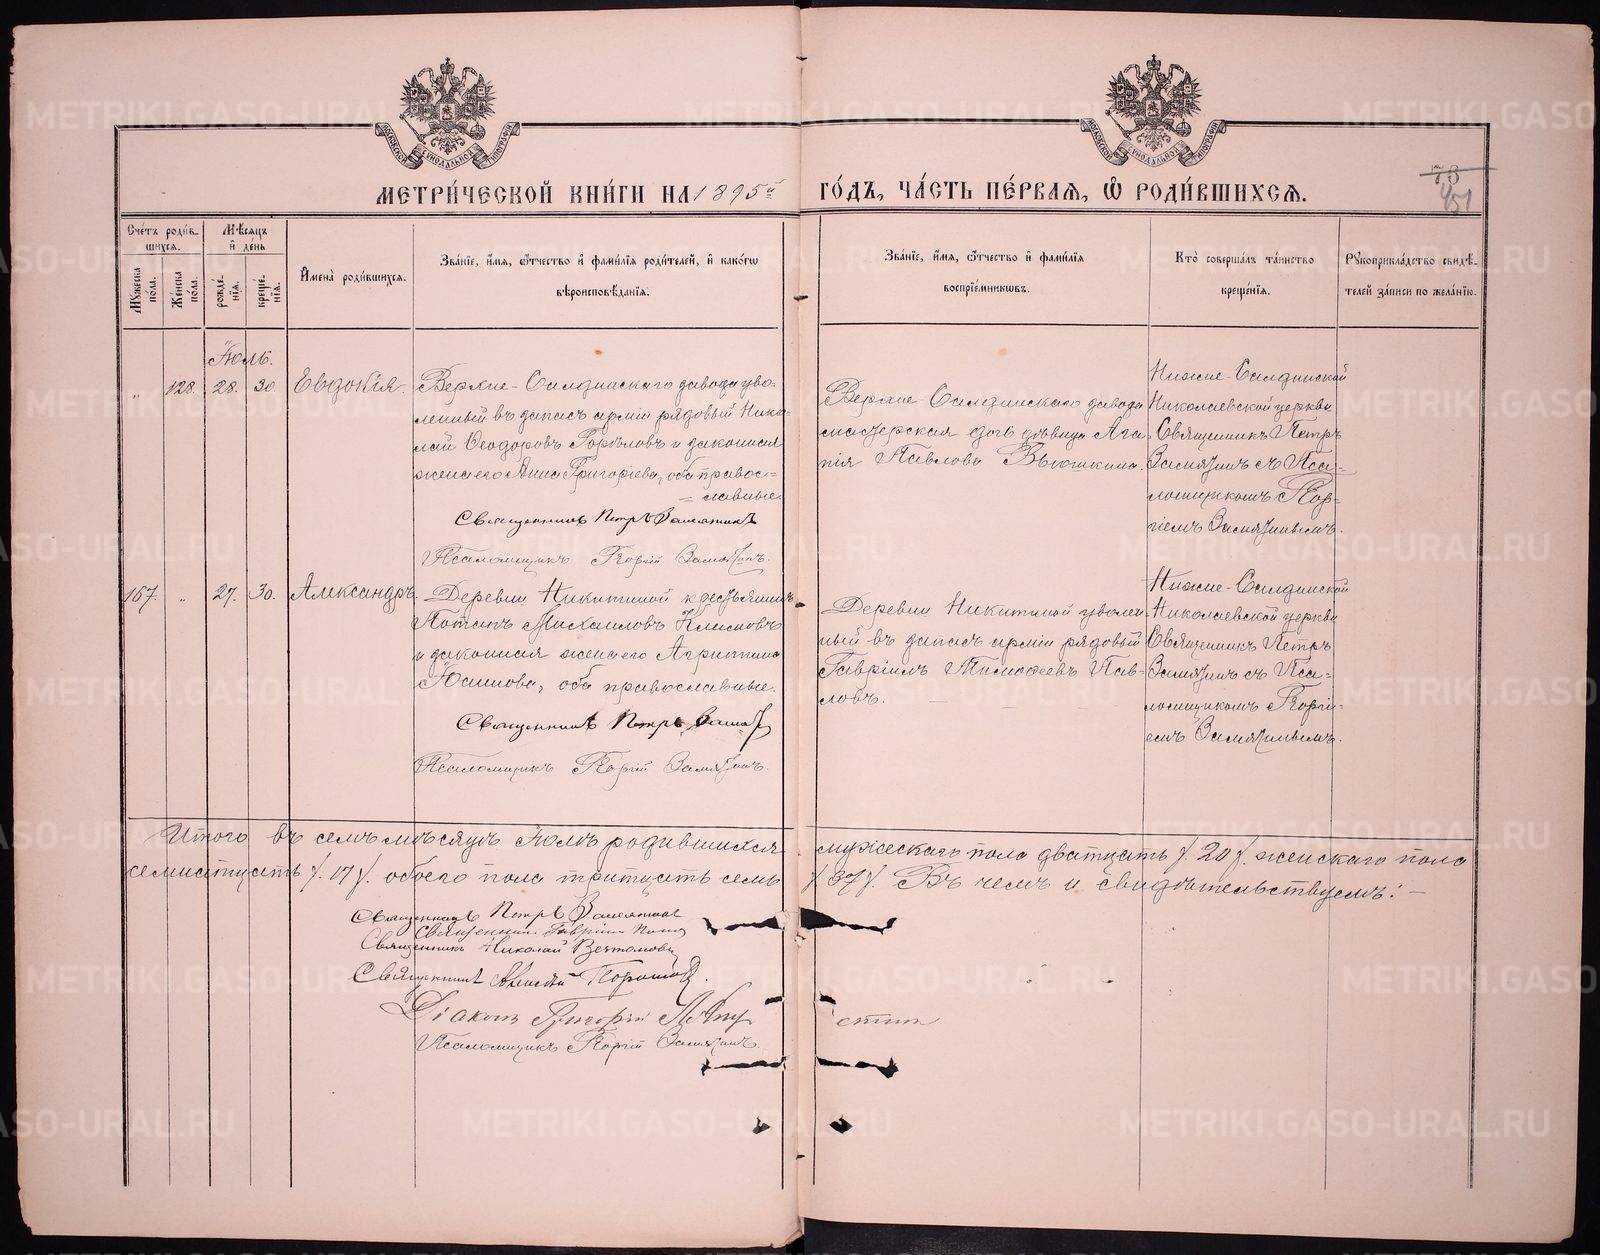 МЕТРИЧЕСКОЙ КНИГИ НА 1895й ГОДЪ, ЧАСТЬ ПЕРВАЯ, Ѿ РОДИВШИХСЯ.
МОСКОВСКОЙ СУНОДАЛЬНОЙ ТИПОГРАФІИ
МОСКОВСКОЙ СУНОДАЛЬНОЙ ТИПОГРАФІИ
451
Счетъ родившихся.
Мужеска пола.
Женска пола.
Мѣсяцъ и день
рожденія.
крещенія.
Имена родившихся.
Званіе, имя, ѿчество и фамилія родителей, и какогѡ
вѣроисповѣданія.
Званіе, имя, ѿчество и фамилія
воспріемниковъ.
Кто совершалъ таинство
крещенія.
Рукоприкладство свидѣ-
телей записи по желанію.
Іюль.
„ 128. 28. 30. Евдокія.
Верхне-Салдинскаго завода уво-
ленный въ запасъ арміи рядовый Нико-
лай Ѳеодоровъ Горѣловъ и законная
жена его Анна Григоріева, оба правос-
=лавные.
Священникъ Петръ Замятинъ
Псаломщикъ Георгій Замятинъ.
Верхне Салдинскаго завода
мастерская дочь дѣвица Ага-
пія Павлова Вьюшкина.
Нижне-Салдинской
Николаевской церкви
Священникъ Петръ
Замятинъ съ Пса-
ломщикомъ Геор-
гіемъ Замятинымъ.
167. „ 27. 30. Александръ.
Деревни Никитиной крестьянинъ
Потапъ Михаиловъ Климовъ
и законная жена его Агриппина
Іоаннова, оба православные.
Священникъ Петръ Замят
Псаломщикъ Георгій Замятинъ.
Деревни Никитиной уволен-
ный въ запасъ арміи рядовый
Гавріилъ Тимоѳеевъ Пав-
ловъ.
Нижне-Салдинской
Николаевской церкви
Священникъ Петръ
Замятинъ съ Пса-
ломщикомъ Георгі-
емъ Замятинымъ.
Итого въ семъ мѣсяцѣ Іюлѣ родившихся мужескаго пола дватцать /. 20 /. женскаго пола
семнатцать /. 17 /. обоего пола тритцать семь /. 37 /. Въ чемъ и свидѣтельствуемъ: —
Священникъ Петръ Замятинъ
Священникъ Гавріилъ
Священникъ Николай
Священникъ Алексѣй
Діаконъ Григорій
Псаломщикъ Георгій Замятинъ.
METRIKI.GASO-URAL.RU